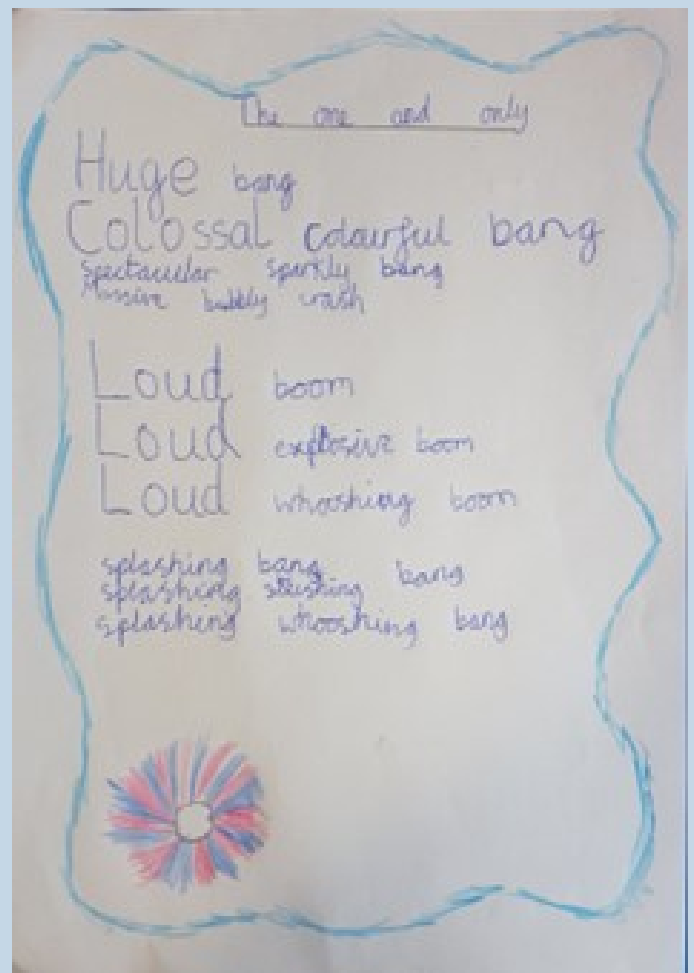 The one and only
Huge bang
Colossal colourful bang
spectacular sparkly bang
Massive bubbly crash
Loud boom
Loud explosive boom
Loud whooshing boom
splashing bang
splashing slushing bang
splashing whooshing bang